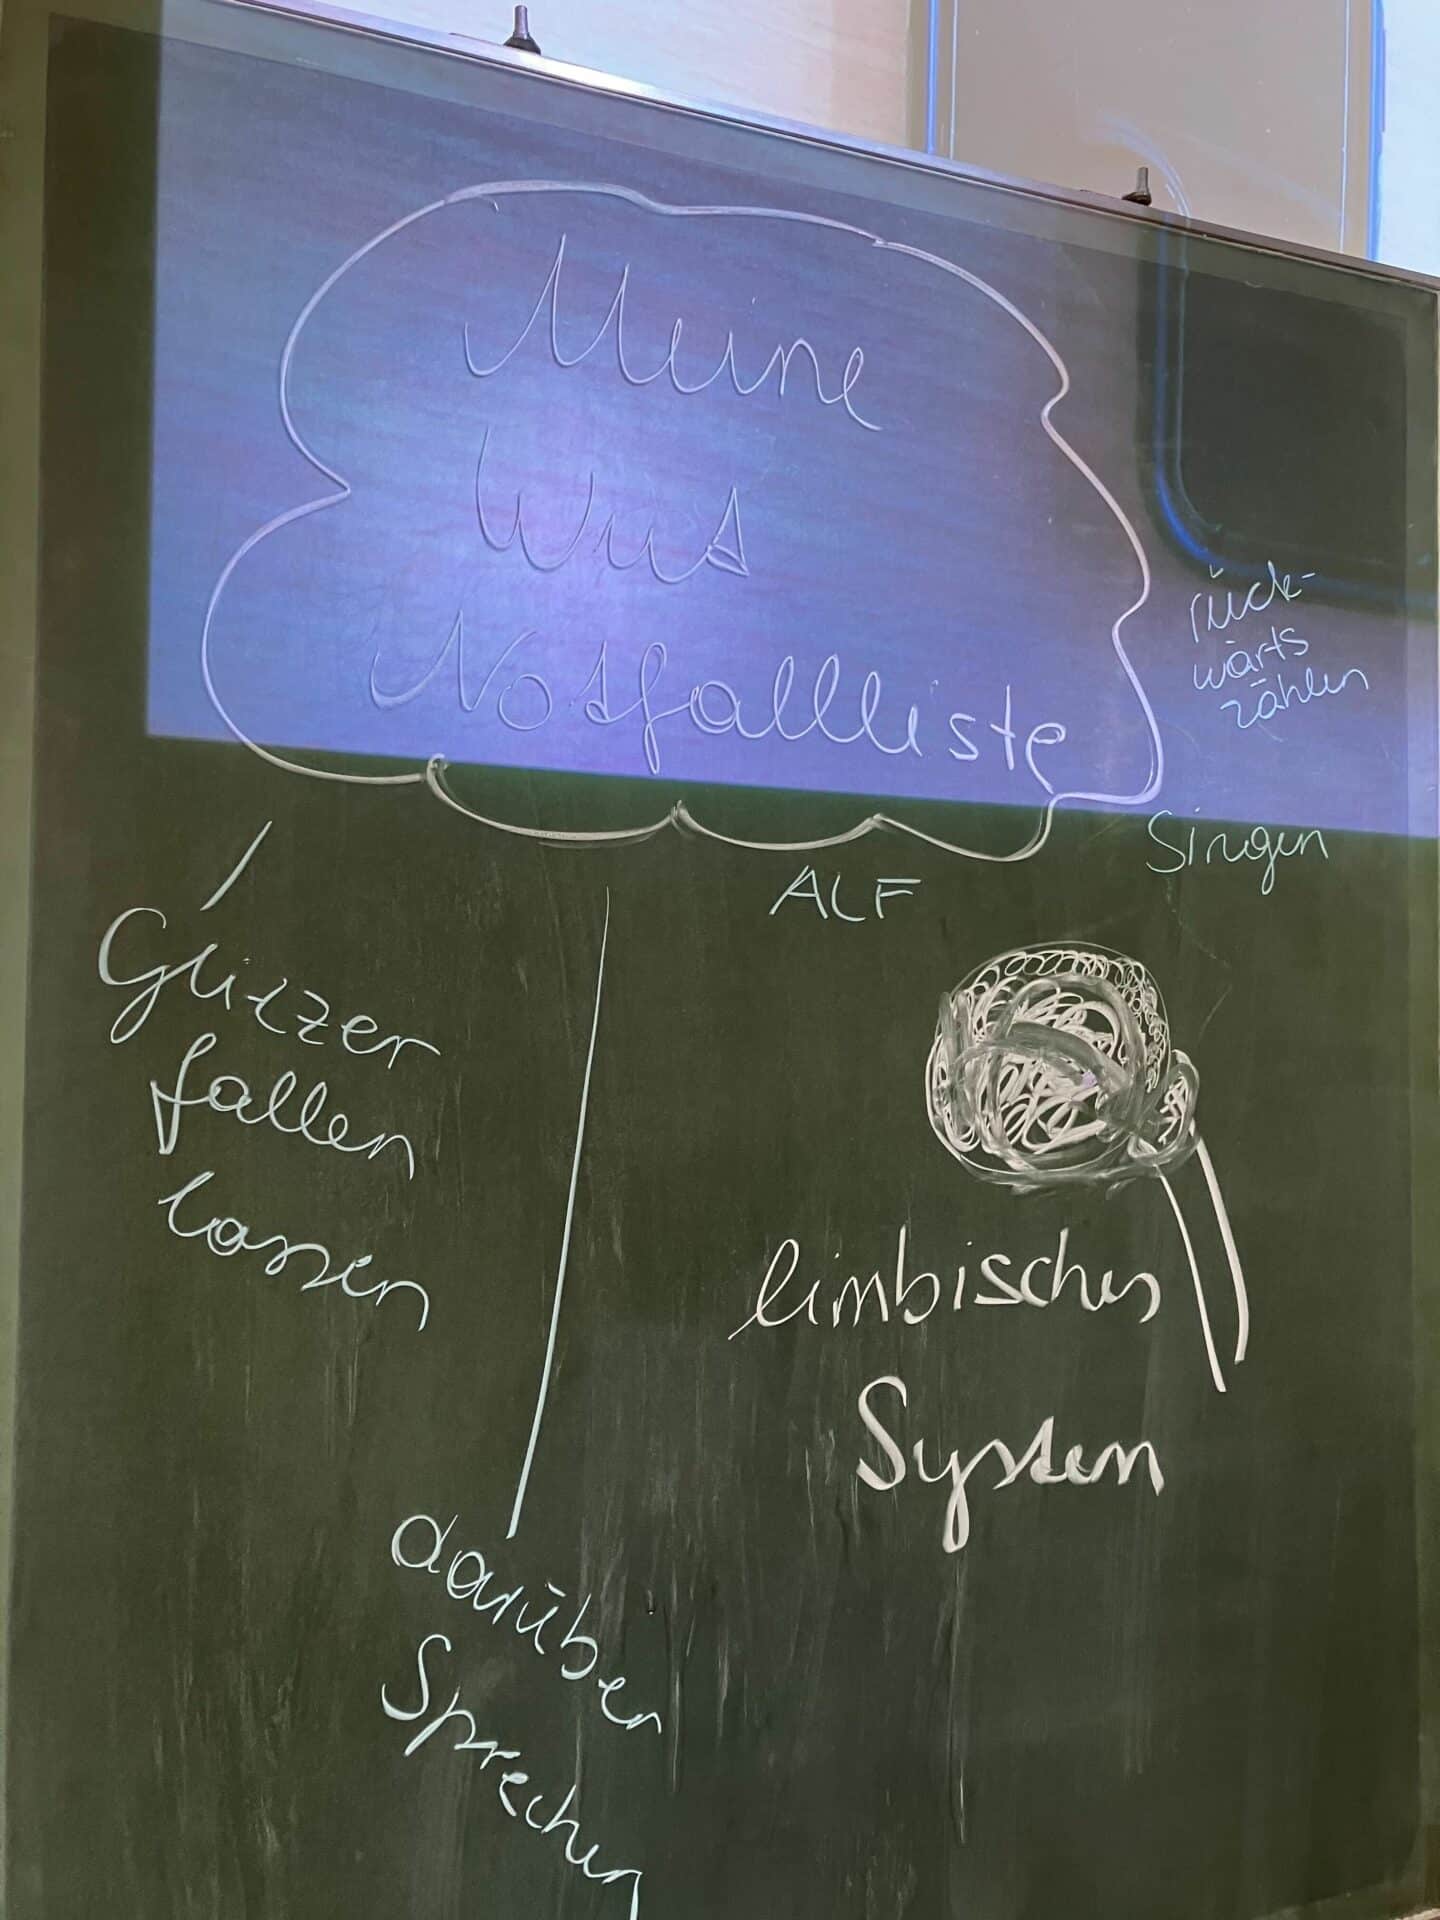 Meine
Wut
Notfallliste
rück-
wärts
zählen
Singen
ALF
Glitzer
fallen
lassen
limbisches
System
darüber
Sprechen